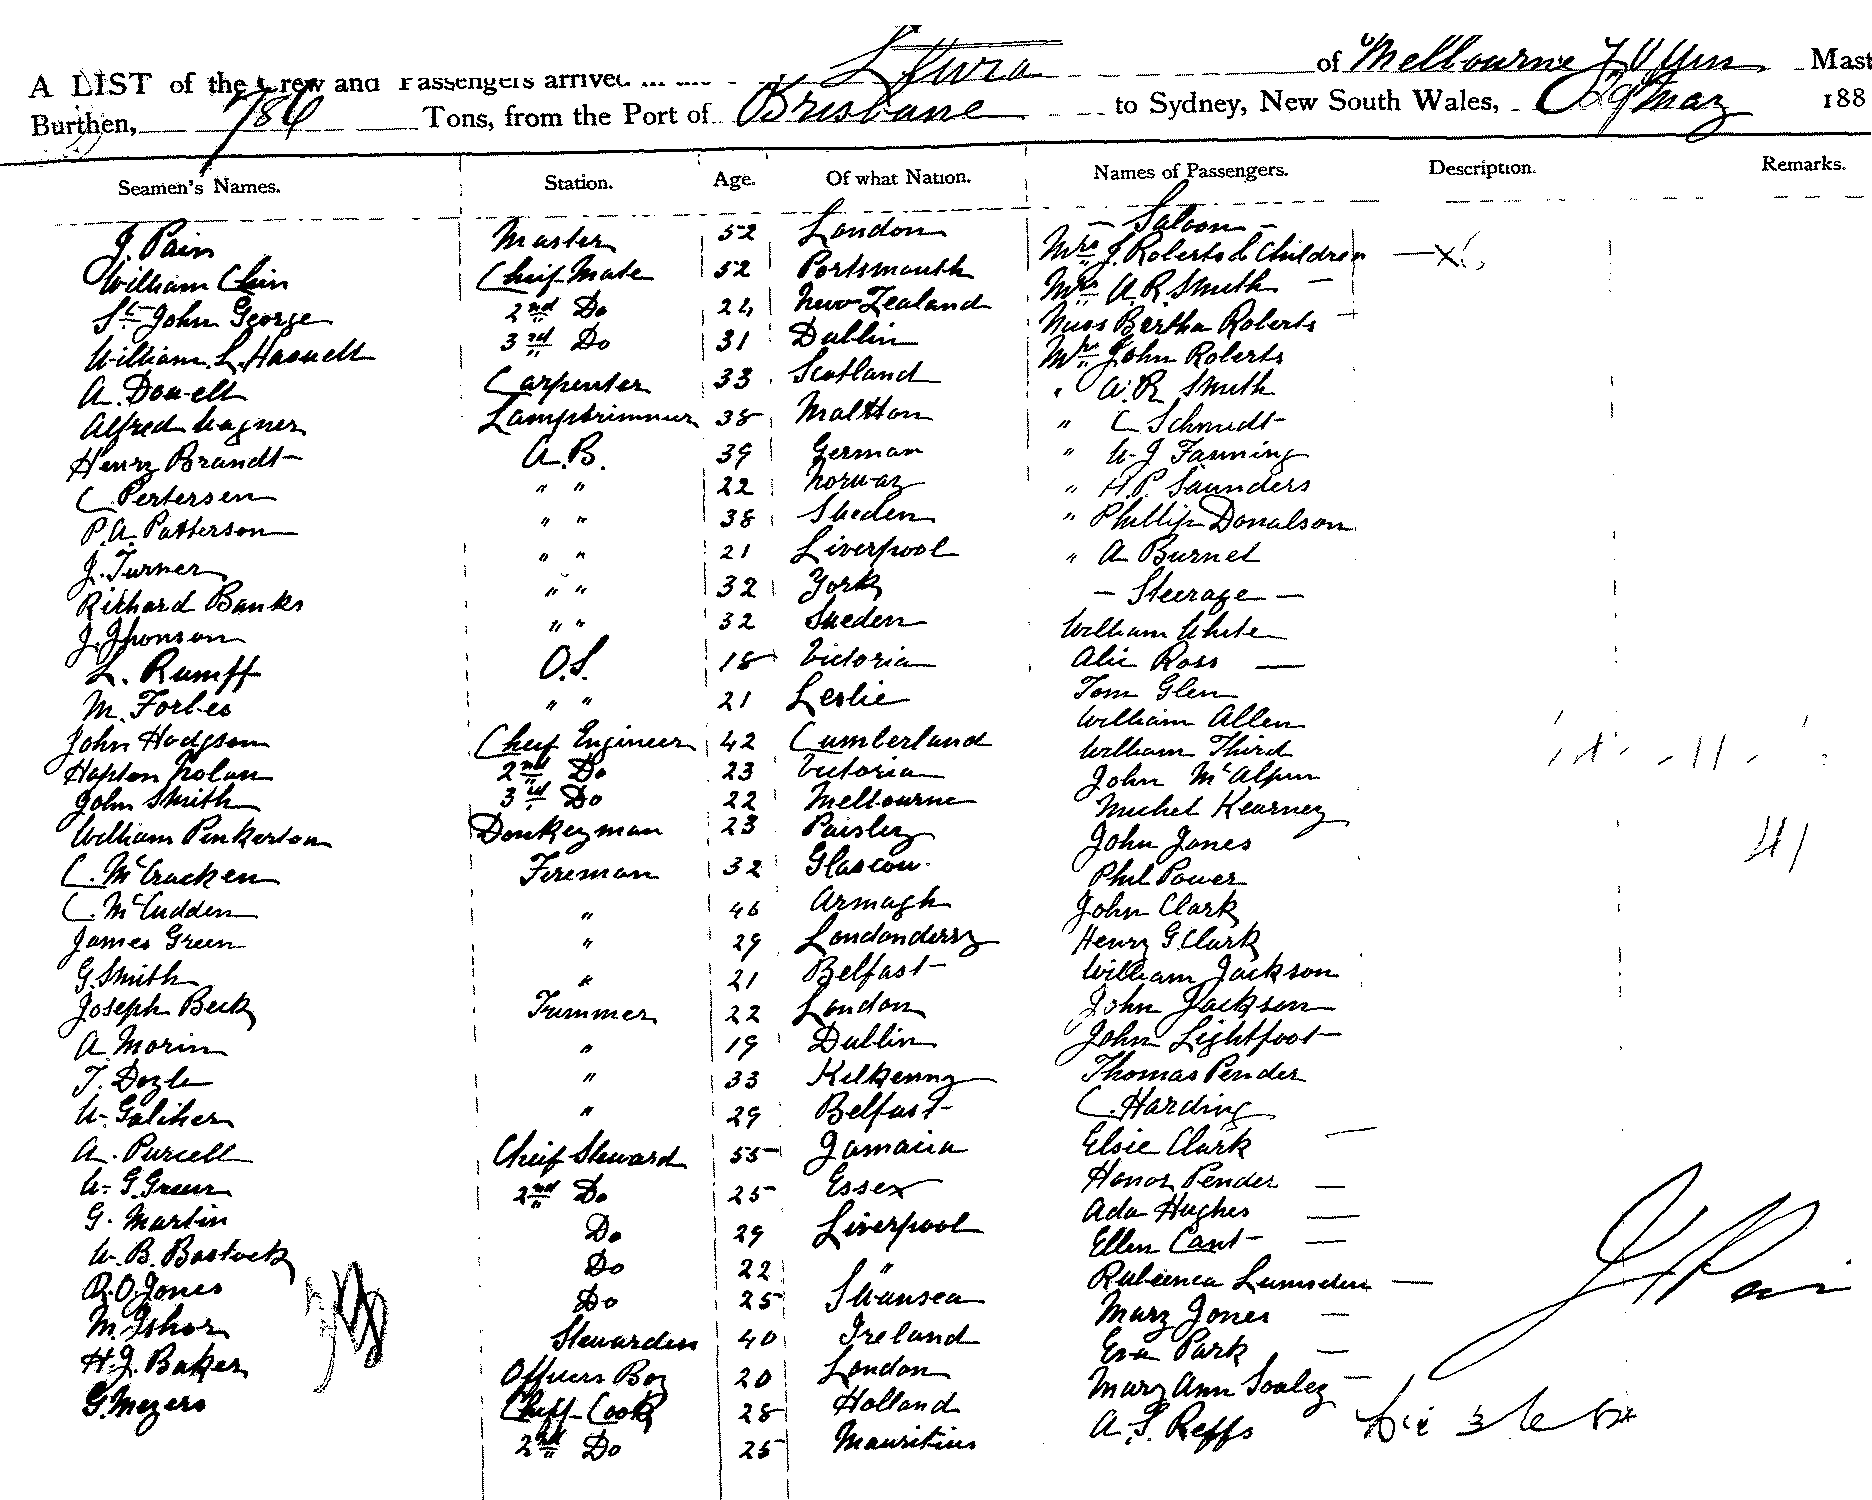 A LIST of the Crew and Passengers arrived of Melbourne Mast
Burthen, 786 Tons, from the Port of Brisbane to Sydney, New South Wales, 29 May 188
Seamen's Names. Station. Age. Of what Nation. Names of Passengers. Description. Remarks.
— Saloon —
J. Pain Master 52 London Mrs J. Roberts & Children
William Chin Cheif Mate 52 Portsmouth Mrs A. R. Smith —
St John George 2nd Do 24 New Zealand Miss Bertha Roberts
William L. Haswell 3rd Do 31 Dublin Mr John Roberts
A. Dowell Carpenter 33 Scotland " W. R. Smith
Alfred Wagner Lamptrimmer 38 Maltton " C Schmidt
Henry Brandt A.B. 39 German " W. J Fanning
C Pertersen " " 22 Norway " H. P. Saunders
P. A. Patterson " " 38 Sweden " Phillip Donalson
J. Turner " " 21 Liverpool " A Burnet
Richard Banks " " 32 York — Steerage —
J. Jhonson " " 32 Sweden William White
L. Rumff O.S. 18 Victoria Alic Ross —
M. Forbes " " 21 Leslie Tom Glen
John Hodgson Cheif Engineer 42 Cumberland William Allen
Hapton Nolan 2nd Do 23 Victoria William Third
John Smith 3rd Do 22 Melbourne John McAlpin
William Penkerton Donkeyman 23 Paisley Michel Kearney
C. McCracken Fireman 32 Glascow John Jones
C. McCudden " 46 Armagh Phil Power
James Green " 29 Londonderry John Clark
G. Smith " 21 Belfast Henry G Clark
Joseph Beck Trimmer 22 London William Jackson
A. Morin " 19 Dublin John Jackson
T. Doyle " 33 Kilkenny John Lightfoot
W. Galiher " 29 Belfast Thomas Pender
A. Purcell Cheif Steward 55 Jamaica C. Harding
W. G. Green 2nd Do 25 Essex Elsie Clark —
G. Martin Do 29 Liverpool Honor Pender —
W. B. Bostock Do 22 " Ada Hughes —
R. O. Jones Do 25 Swansea Ellen Cant —
M. Ishor Stewardess 40 Ireland Rubeenca Lumsden —
H. J. Baker Officers Boy 20 London Mary Jones —
G. Meyers Cheif Cook 28 Holland Eva Park —
2nd Do 25 Mauritius Mary Ann Soaley —
A. S. Reffs
41
J Pain